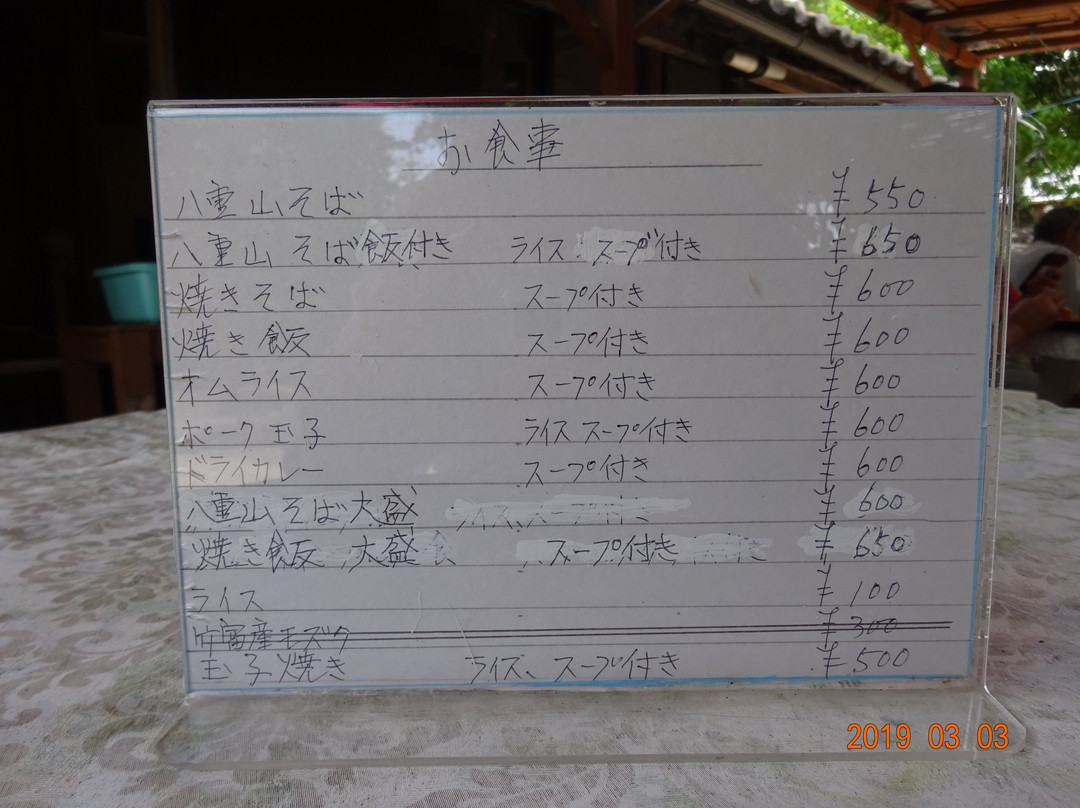 お食事
八重山そば ¥550
八重山そば飯付き ライス スープ付き ¥650
焼きそば スープ付き ¥600
焼き飯 スープ付き ¥600
オムライス スープ付き ¥600
ポーク玉子 ライス スープ付き ¥600
ドライカレー スープ付き ¥600
八重山そば大盛 ¥600
焼き飯 大盛 スープ付き ¥650
ライス ¥100
竹富産モズク ¥300
玉子焼き ライス、スープ付き ¥500
2019 03 03